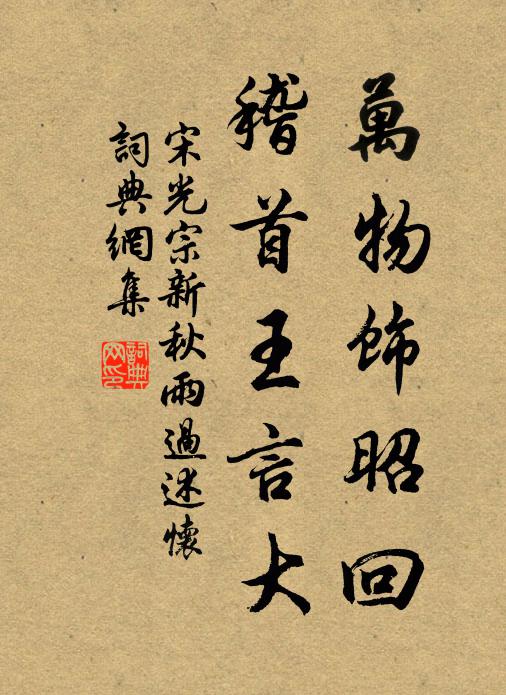 萬物飾昭回
稽首王言大
宋光宗新秋雨過述懷
詞典網集
詞典網印